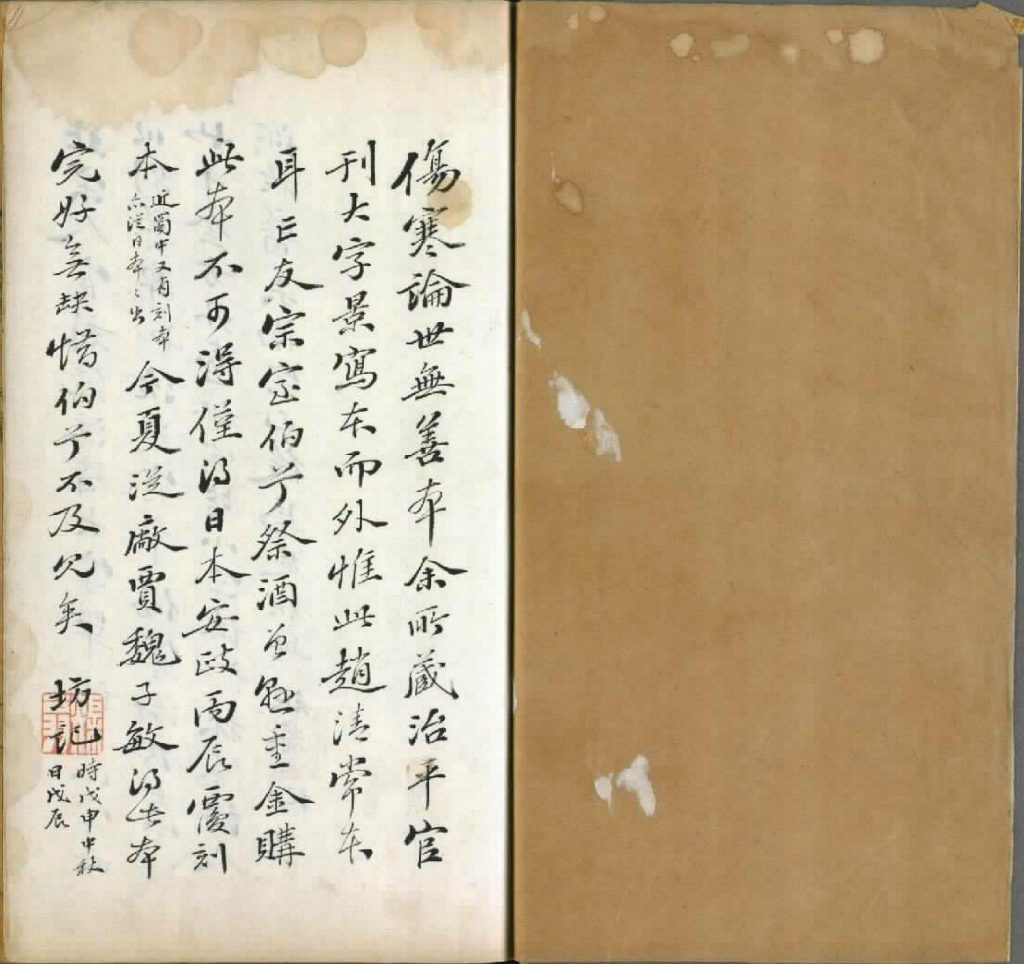 傷寒論世無善本余所藏治平官
刊大字景寫本而外惟此趙清常本
耳亡友宗室伯兮祭酒曾懸重金購
此本不可得僅得日本安政丙辰覆刻
本近蜀中又有刻本亦從日本本出今夏從廠賈魏子敏得此本
完好無缺惜伯兮不及見矣 坊記時戊申中秋日戊辰